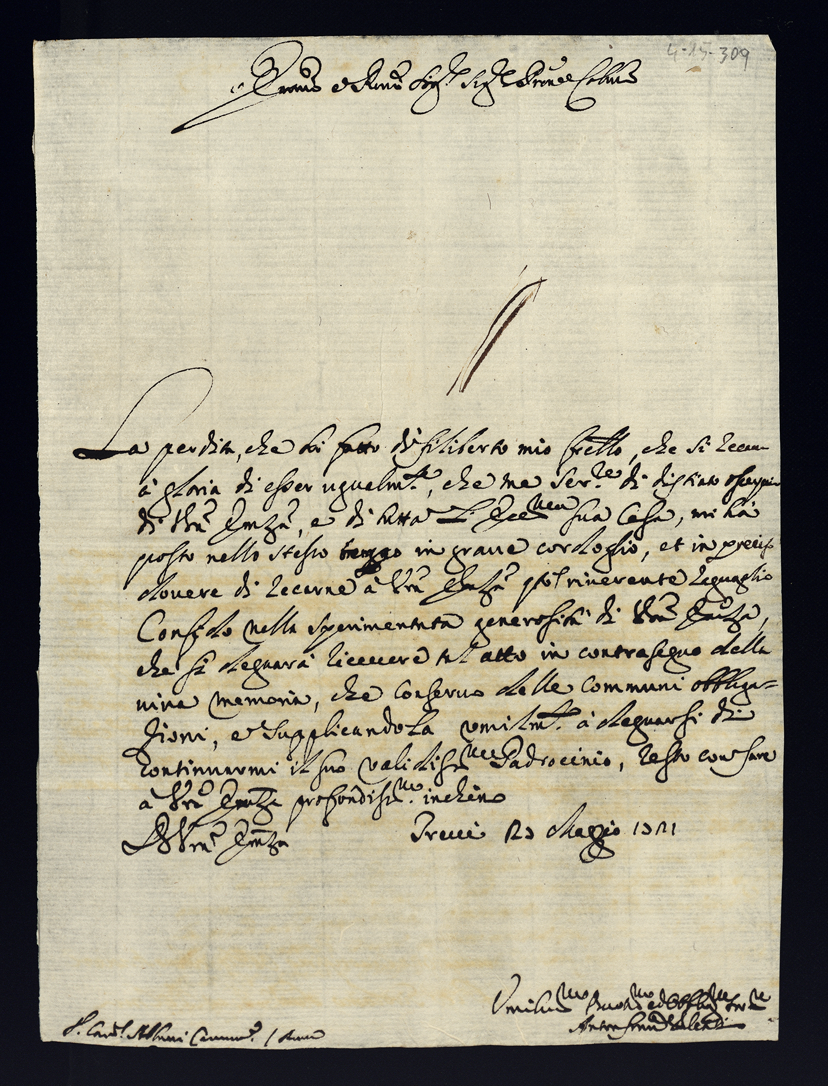 4-15-309
Em̃o e Rm̃o Sig.r Sig.r Pr̃one Col̃mo
La perdita, che hò fatto di Filiberto mio fr̃ello, che si recau-
a à gloria di esser ugualm.te, che me Ser.re di distinto ossequio
di Vr̃a Em̃za, e di tutta l'Ecc.ma sua Casa, mi hà
posto nello stesso tempo in graue cordoglio, et in precis
douere di recarne à Vr̃a Em̃za riuerente raguaglio
Confido nella sperimentata generosità di Vr̃a Em̃za,
che si degnarà riceuere tal atto in contrasegno della
uiua memoria, che conseruo delle communi obbliga=
zioni, e supplicandola umilm.te à degnarsi di
continuarmi il suo ualidiss.mo Padrocinio, resto con fare
à Vr̃a Em̃za profondiss.mo inchino
D Vr̃a Em̃za Treui 23 Maggio 1721
Umiliss.mo Deuot.mo ed Obblig.mo Ser.re
Anton Valenti
S. Card.l Albani Camerl.o / Roma